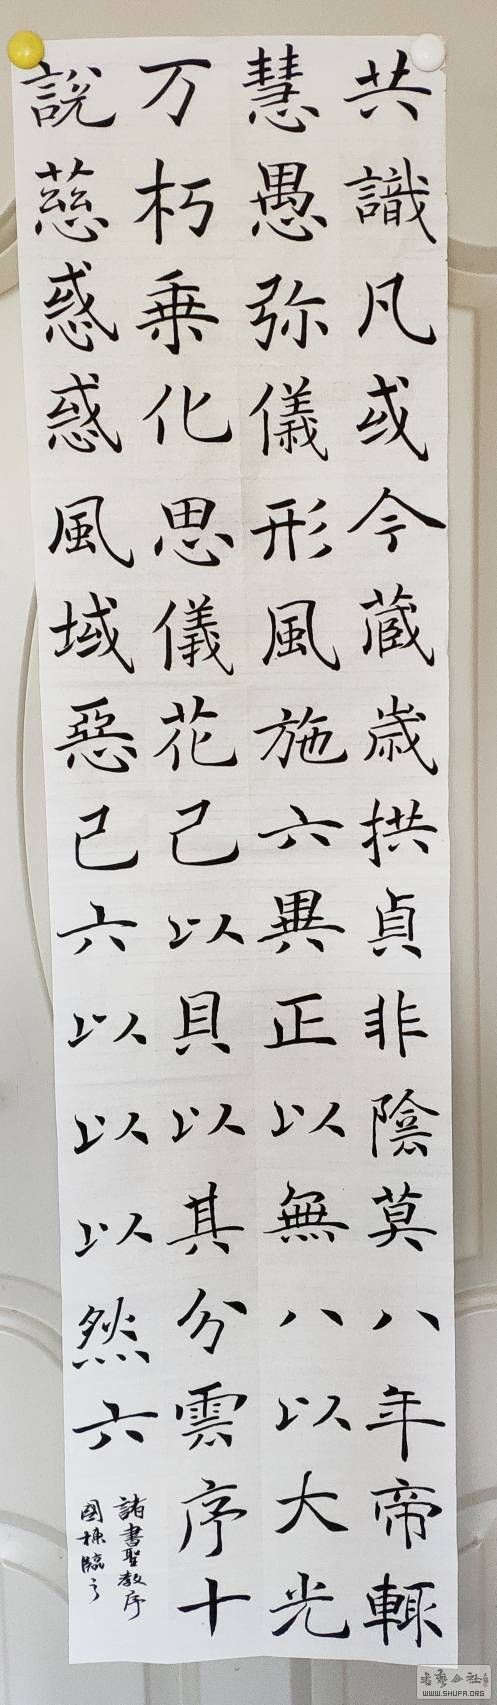 共識凡或今蔵歳拱貞非陰莫八年帝輙
慧愚弥儀形風施六異正以無八以大光
万朽乗化思儀花己以具以其分雲序十
說慈惑惑風域惡已六以以以然六
諸書聖教序
國棟臨
书艺公社
WWW.SHUFA.ORG